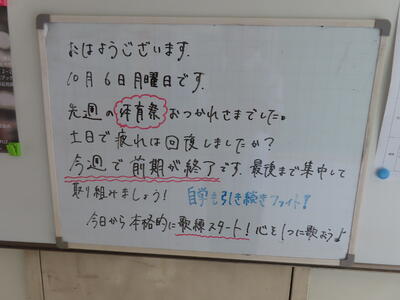 おはようございます.
10月6日月曜日です.
先週の体育祭おつかれさまでした。
土日で疲れは回復しましたか?
今週で前期が終了です. 最後まで集中して
取り組みましょう! 自学も引き続きファイト!
今日から本格的に歌練スタート! 心を1つに歌おう♪